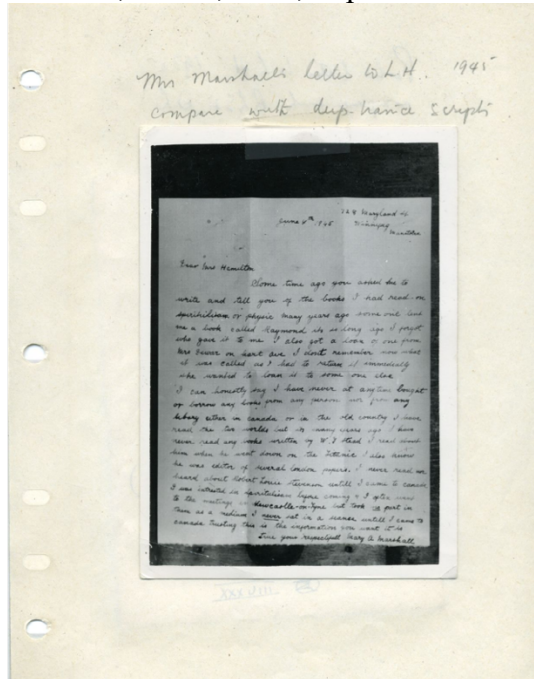 Mrs Marshall's letter to L.H. 1945
compare with deep-trance scripts
June 4th 1945
Maryland St
Winnipeg
Manitoba
Dear Mrs Hamilton
Some time ago you asked me to
write and tell you of the books I had read on
spiritualism or physic many years ago some one lent
me a book called Raymond its so long ago I forget
who gave it to me I also got a loan of one from
Mrs on hart ave I don't remember now what
it was called as I had to return it immediately
she wanted to loan it to some one else
I can honestly say I have never at anytime bought
or borrow any books from any person nor from any
libary either in canada or in the old country I have
read the two worlds but its many years ago I have
never read any books written by W. T Stead I read about
him when he went down on the Titinic I also
he was editor of several london papers. I never read nor
heard about Robert Louis untill I came to canada
I was intrested in spiritulism before coming & I often went
to the meetings in Newcastle-on-Tyne but took no part in
them as a medium I never sat in a seance untill I came to
canada Trusting this is the information you want it is
true yours respecfull Mary A Marshall